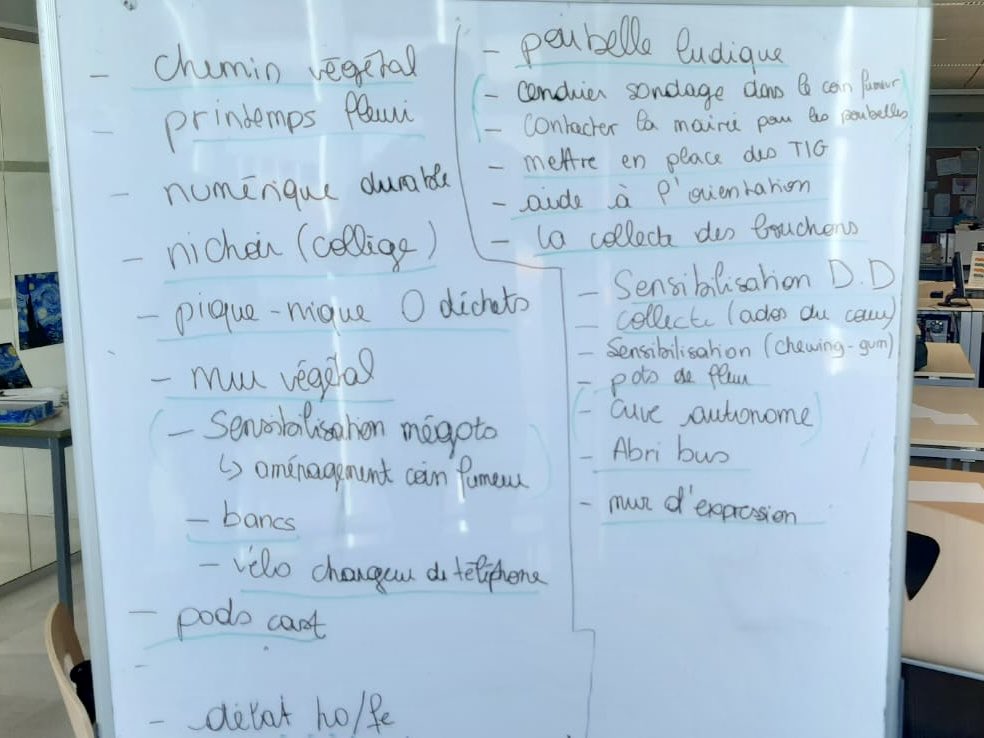 - chemin végétal
- printemps fleuri
- numérique durable
- nichoir (collège)
- pique-nique 0 déchets
- mur végétal
- Sensibilisation mégots
↳ aménagement coin fumeur
- bancs
- vélo chargeur de téléphone
- pods cast
-
- débat ho/fe
- poubelle ludique
- cendrier sondage dans le coin fumeur
- contacter la mairie pour les poubelles
- mettre en place des TIG
- aide à l'orientation
- la collecte des bouchons
- Sensibilisation D.D
- collecte (ados du cœur)
- Sensibilisation (chewing-gum)
- pots de fleur
- Cuve autonome
- Abri bus
- mur d'expression